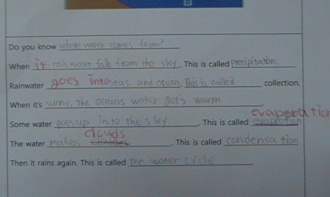 Do you know where water comes from?
When it rain water falls from the sky. This is called precipitation.
Rainwater goes into seas and ocean. This is called collection.
When it's sunny, the oceans water gets warm.
evaporation
Some water goes up into the sky. This is called
clouds
The water makes. This is called condensation
Then it rains again. This is called the water cycle